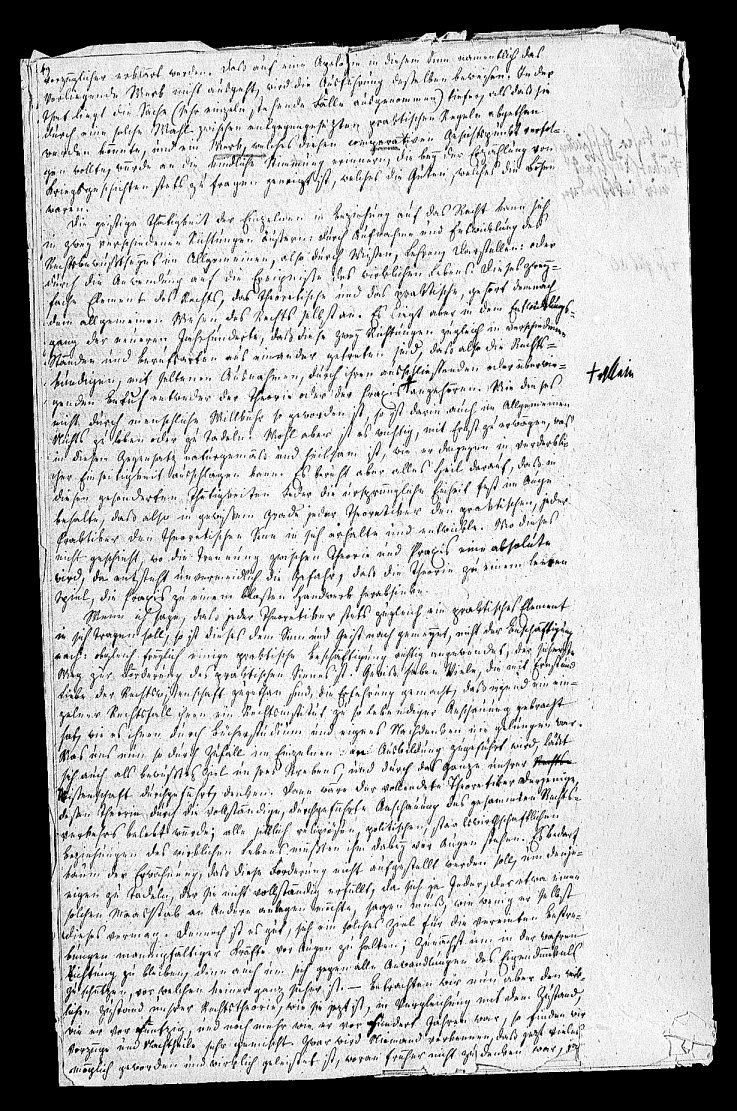 vorzüglicher erklärt werden. Daß auf eine Apologie in diesem Sinn namentlich das
vorliegende Werk nicht ausgeht, wird die Ausführung desselben beweisen. In der
That liegt die Sache (sehr einzeln stehende Fälle ausgenommen) tiefer, als daß sie
durch eine solche Wahl zwischen entgegengesetzten praktischen Regeln abgethan
werden könnte, und ein Werk, welches diesen comparativen Gesichtspunkt verfol-
gen wollte, würde an die kindliche Stimmung erinnern, die bey der Erzählung von
Kriegsgeschichten stets zu fragen geneigt ist, welches die Guten, welches die Bösen
waren.
Die geistige Thätigkeit der Einzelnen in Beziehung auf das Recht kann sich
in zwey verschiedenen Richtungen äußern: durch Aufnahme und Entwicklung des
Rechtsbewußtseyns im Allgemeinen, also durch Wissen, Lehren, Darstellen: oder
durch die Anwendung auf die Ereignisse des wirklichen Lebens. Dieses zwey-
fache Element des Rechts, das theoretische und das praktische, gehört demnach
dem allgemeinen Wesen des Rechts selbst an. Es liegt aber in dem Entwicklungs-
gang der neueren Jahrhunderte, daß diese zwey Richtungen zugleich in verschiedenen
Ständen und Berufsarten aus einander getreten sind, daß also die Rechts-
kundigen, mit seltenen Ausnahmen, durch ihren ausschließenden oder überwie-
genden Beruf entweder der Theorie oder der Praxis + angehören. Wie dieses
+ allein
nicht durch menschliche Willkühr so geworden ist, so ist darin auch im Allgemeinen
Nichts zu loben oder zu tadeln. Wohl aber ist es wichtig, mit Ernst zu erwägen, was
in diesem Gegensatz naturgemäß und heilsam ist, wie er dagegen in verderbli-
cher Einseitigkeit ausschlagen kann. Es beruht aber alles Heil darauf, daß in
diesen gesonderten Thätigkeiten Jeder die ursprüngliche Einheit fest im Auge
behalte, daß also in gewissem Grade jeder Theoretiker den praktischen, jeder
Praktiker den theoretischen Sinn in sich erhalte und entwickle. Wo dieses
nicht geschieht, wo die Trennung zwischen Theorie und Praxis eine absolute
wird, da entsteht unvermeidlich die Gefahr, daß die Theorie zu einem leeren
Spiel, die Praxis zu einem bloßen Handwerk herabsinke.
Wenn ich sage, daß jeder Theoretiker stets zugleich ein praktisches Element
in sich tragen soll, so ist dieses dem Sinn und Geist nach gemeynt, nicht der Beschäftigung
nach: obgleich freylich einige praktische Beschäftigung, richtig angewendet, der sicherste
Weg zur Förderung des praktischen Sinnes ist. Gewiß haben Viele, die mit Ernst und
Liebe der Rechtswissenschaft zugethan sind, die Erfahrung gemacht, daß irgend ein ein-
zelner Rechtsfall ihnen ein Rechtsinstitut zu so lebendiger Anschauung gebracht
hat, wie es ihnen durch Bücherstudium und eignes Nachdenken nie gelungen war.
Was uns nun so durch Zufall im Einzelnen an Ausbildung zugeführt wird, läßt
sich auch als bewußtes Ziel unsres Strebens, und durch das Ganze unsrer
Wissenschaft durchgeführt, denken. Dann wäre der vollendete Theoretiker derjenige,
dessen Theorie durch die vollständige, durchgeführte Anschauung des gesammten Rechts-
verkehrs belebt würde; alle sittlich religiösen, politischen, staatswirthschaftlichen
Beziehungen des wirklichen Lebens müßten ihm dabey vor Augen stehen. Es bedarf
kaum der Erwähnung, daß diese Forderung nicht aufgestellt werden soll, um denje-
nigen zu tadeln, der sie nicht vollständig erfüllt, da sich ja Jeder, der etwa einen
solchen Maasstab an Andere anlegen möchte, sagen muß, wie wenig er selbst
dieses vermag. Dennoch ist es gut, sich ein solches Ziel für die vereinten Bestre-
bungen mannichfaltiger Kräfte vor Augen zu halten; zunächst um in der wahren
Richtung zu bleiben, dann auch um sich gegen alle Anwandlungen des Eigendünkels
zu schützen, vor welchen Keiner ganz sicher ist. — Betrachten wir nun aber den wirk-
lichen Zustand unsrer Rechtstheorie, wie sie jetzt ist, in Vergleichung mit dem Zustand,
wie er vor Funfzig, und noch mehr wie er vor Hundert Jahren war, so finden wir
Vorzüge und Nachtheile sehr gemischt. Zwar wird Niemand verkennen, daß jetzt Vieles
möglich geworden und wirklich geleistet ist, woran früher nicht zu denken war,